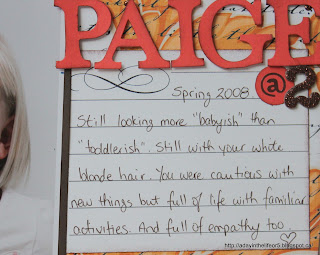 PAIGE
@2
Spring 2008
Still looking more "babyish" than
"toddlerish". Still with your white
blonde hair. You were cautious with
new things but full of life with familiar
activities. And full of empathy too.